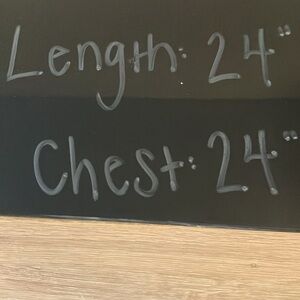 Length: 24"
Chest: 24"